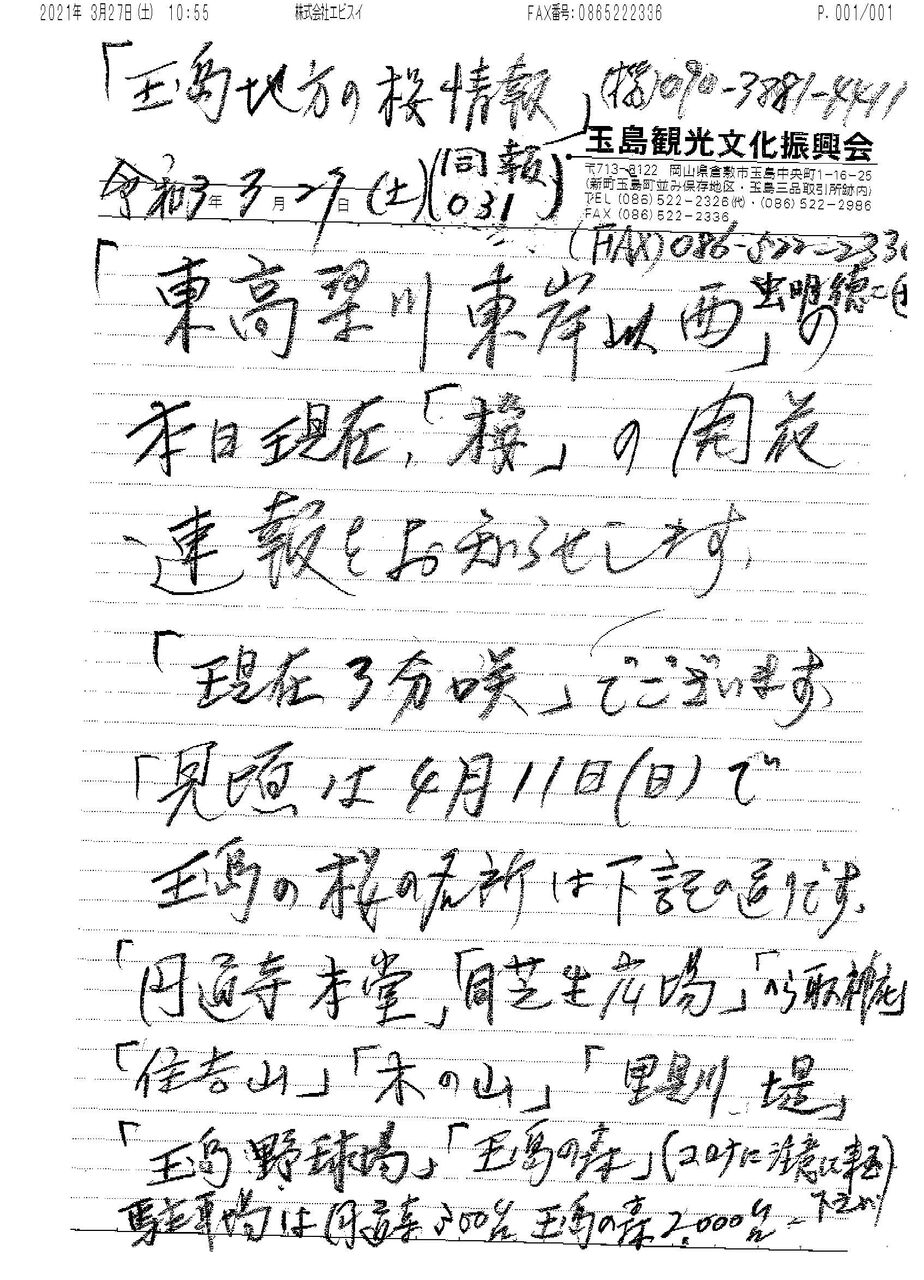 2021年 3月27日(土) 10:55 株式会社エビスイ FAX番号:0865222336 P.001/001
「玉島地方の桜情報」
(携)090-3881-4411
玉島観光文化振興会
〒713-8122 岡山県倉敷市玉島中央町1-16-25
(新町玉島町並み保存地区・玉島三品取引所跡内)
TEL (086)522-2326(代)・(086)522-2986
FAX (086)522-2336
令和3年3月27日(土)(同報031)
(FAX)086-522-2336
虫明徳二
「東高梁川東岸以西」の
本日現在,「桜」の開花
速報をお知らせします、
「現在3分咲」でございます、
「見頃は4月11日(日)で
玉島の桜の名所は下記の通りです、
「円通寺本堂」「同芝生広場」
「住吉山」「木の山」「里見川堤」
「玉島野球場」「玉島の森」(コロナに注意し
駐車場は円通寺300台 玉島の森2,000台
下さい)